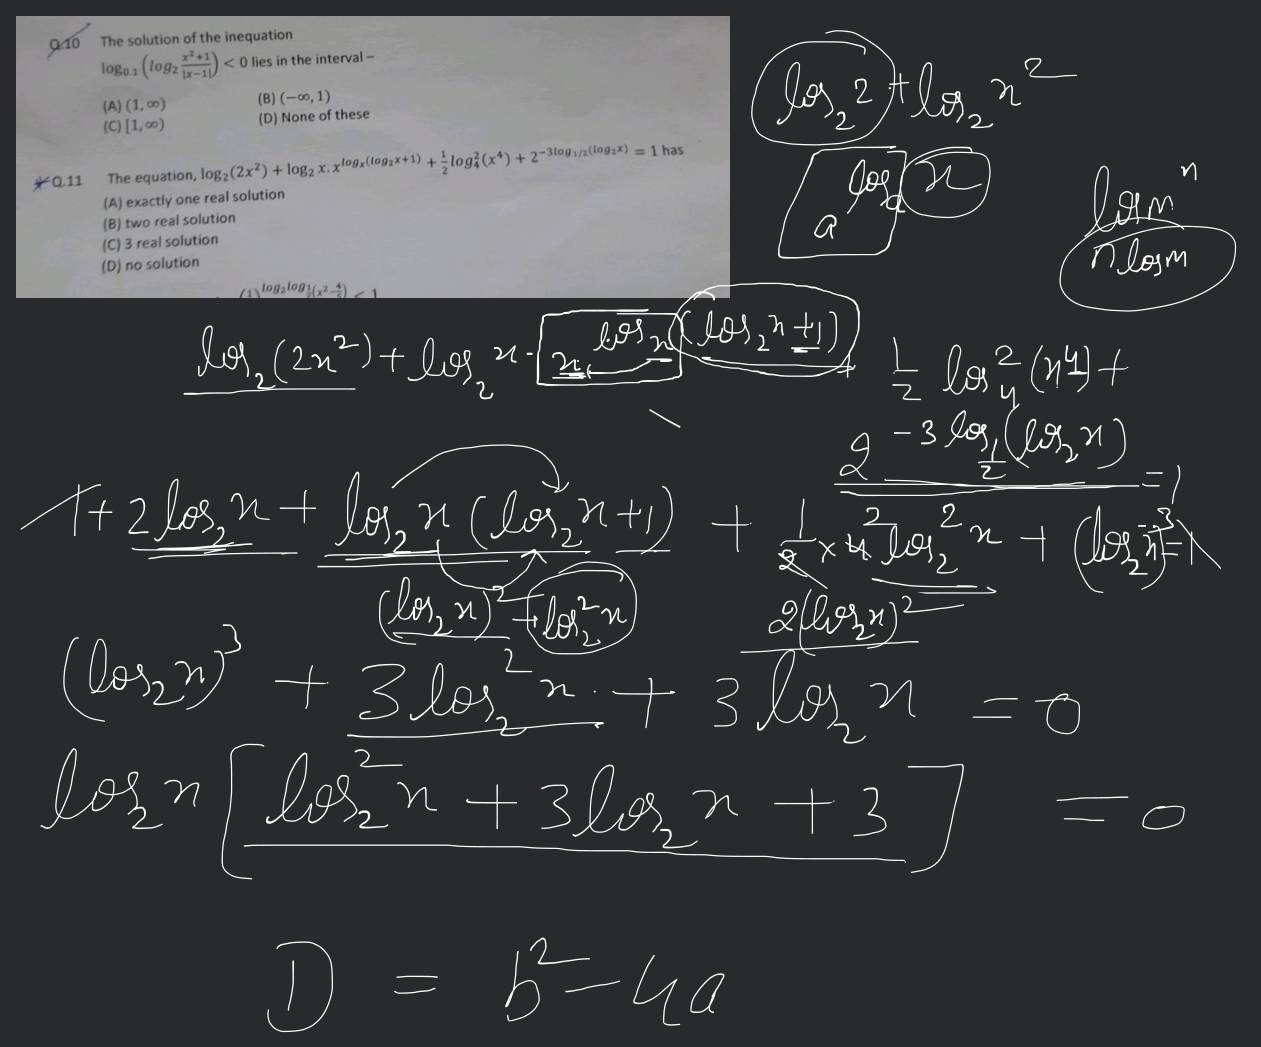 Q.10 The solution of the inequation
log₀.₁ (log₂ (x²+1)/|x−1|) < 0 lies in the interval –
(A) (1, ∞) (B) (−∞, 1)
(C) [1, ∞) (D) None of these
Q.11 The equation, log₂(2x²) + log₂ x. x^(logₓ(log₂x+1)) + ½ log₄²(x⁴) + 2^(−3log₁/₂(log₂x)) = 1 has
(A) exactly one real solution
(B) two real solution
(C) 3 real solution
(D) no solution
log₂2 + log₂x²
a^(logₐ x)
log mⁿ
n log m
log₂(2x²) + log₂x · x^(logₓ(log₂x+1)) + ½ log₄²(x⁴) +
2^(−3log₁/₂(log₂x)) = 1
1 + 2log₂x + log₂x (log₂x+1) + ½ × 4 log₂²x + (log₂x)³ = 1
(log₂x)² + log₂²x 2(log₂x)²
(log₂x)³ + 3log₂²x + 3log₂x = 0
log₂x [log₂²x + 3log₂x + 3] = 0
D = b² − 4a